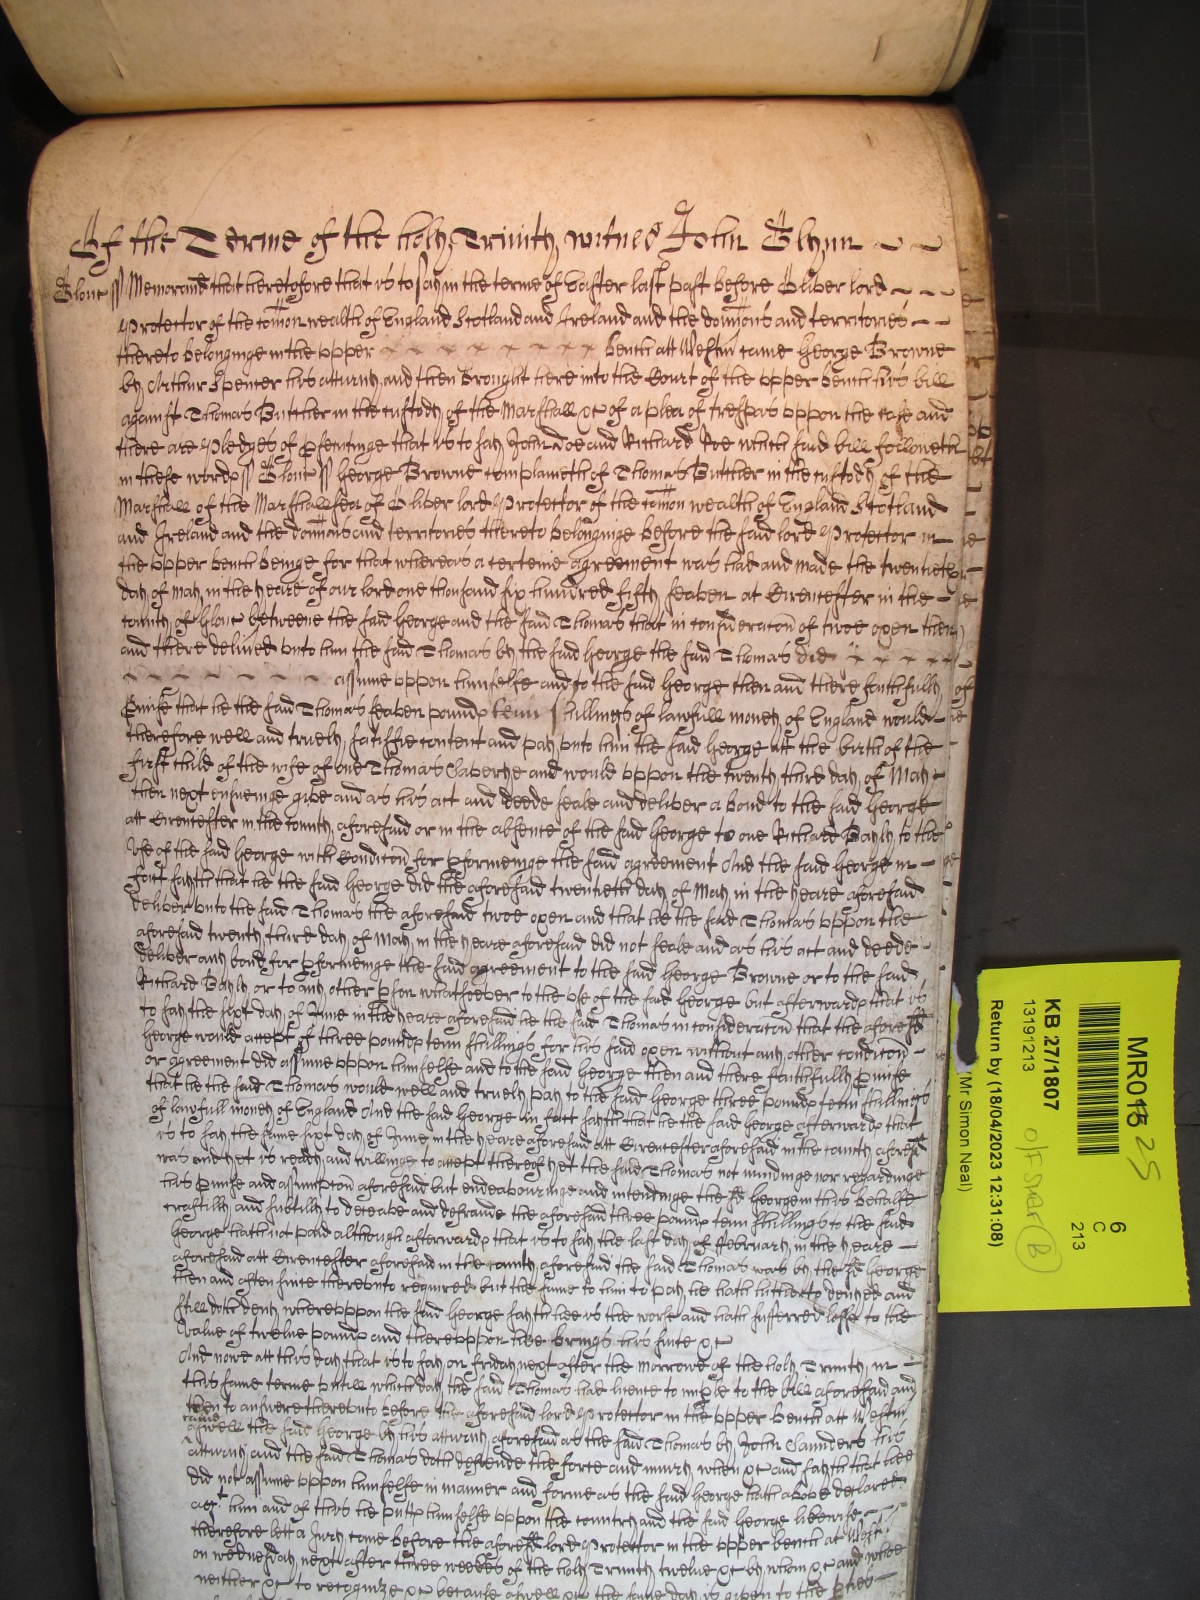 Of the Terme of the holy Trinity witnes John Glynn
Glouc ss Memorand that heretofore that is to say in the terme of Easter last past before Oliver lord
Protector of the comon wealth of England Scotland and Ireland and the dominions and territories
thereto belonginge in the upper bench att Westm came George Browne
by Arthur Spencer his atturny and then brought here into the Court of the upper bench his bill
against Thomas Buttler in the custody of the Marshall &c of a plea of trespas uppon the case and
there are pledges of psentinge that is to say John Doe and Richard Roe which said bill followeth
in these words ss Glouc ss George Browne complaineth of Thomas Buttler in the custody of the
Marshall of the Marshallsea of Oliver lord Protector of the comon wealth of England Scotland
and Ireland and the dominions and territories thereto belonginge before the said lord Protector in
the upper bench beinge for that whereas a certeine agreement was had and made the twentieth
day of May in the yeare of our lord one thousand six hundred fifty seaven at Cirencester in the
county of Glouc betweene the said George and the said Thomas that in consideracon of twoe oxen then
and there delived unto him the said Thomas by the said George the said Thomas did
assume uppon himselfe and to the said George then and there faithfully
pmise that he the said Thomas seaven pounds tenn shillings of lawfull money of England would
therefore well and truely satisfie content and pay unto him the said George att the birth of the
first child of the wife of one Thomas and would uppon the twenty third day of May
then next ensueinge give and as his act and deede seale and deliver a bond to the said George
att Cirencester in the county aforesaid or in the absence of the said George to one Richard Bayly to the
use of the said George with Condicon for pformeinge the said agreement And the said George in
fact sayth that he the said George did the aforesaid twentieth day of May in the yeare aforesaid
deliver unto the said Thomas the aforesaid twoe oxen and that he the said Thomas uppon the
aforesaid twenty third day of May in the yeare aforesaid did not seale and as his act and deede
deliver any bond for pformeinge the said agreement to the said George Browne or to the said
Richard Bayly or to any other pson whatsoever to the use of the said George but afterwards that is
to say the sixt day of June in the yeare aforesaid he the said Thomas in consideracon that the aforesd
George would accept of three pounds tenn shillings for his said oxen without any other condicon
or agreement did assume uppon himselfe and to the said George then and there faithfully pmise
that he the said Thomas would well and truely pay to the said George three pounds tenn shillings
of lawfull money of England And the said George in fact sayth that he the said George afterwards that
is to say the same sixt day of June in the yeare aforesaid att Cirencester aforesaid in the county aforesd
was and yet is ready and willinge to accept thereof yet the said Thomas not mindinge nor regardinge
his pmise and assumpcon aforesaid but endeavouringe and intendinge the sd George in this behalfe
craftilly and subtilly to deceave and defraude the aforesaid three pounds tenn shillings to the said
George hath not paid although afterwards that is to say the last day of ffebruary in the yeare
aforesaid att Cirencester aforesaid in the county aforesaid the said Thomas was by the sd George
then and often since thereunto required but the same to him to pay he hath hitherto denyed and
still doth deny whereuppon the said George sayth hee is the worse and hath suffered losse to the
value of twelve pounds and thereuppon hee brings his suite &c
And nowe att this day that is to say on friday next after the morrowe of the holy Trinity in
this same terme untill which day the said Thomas had licence to imple to the bill aforesaid and
then to answere thereunto before the aforesaid lord Protector in the upper bench att Westm
came
aswell the said George by his atturny aforesaid as the said Thomas by John Saunders his
atturny and the said Thomas doth defende the force and iniury when &c and sayth that hee
did not assume uppon himselfe in manner and forme as the said George hath above declared
agt him and of this he putts himselfe uppon the country and the said George likewise
therefore lett a Jury come before the aforesd lord Protector in the upper bench at Westm
on wednesday next after three weekes of the holy Trinity twelve &c by whom &c and whoe
neither &c to recognize &c because aswell &c the same day is given to the pties
MR01
25
6
C
213
KB 27/1807
13191213
Return by (18/04/2023 12:31:08)
(Mr Simon Neal)